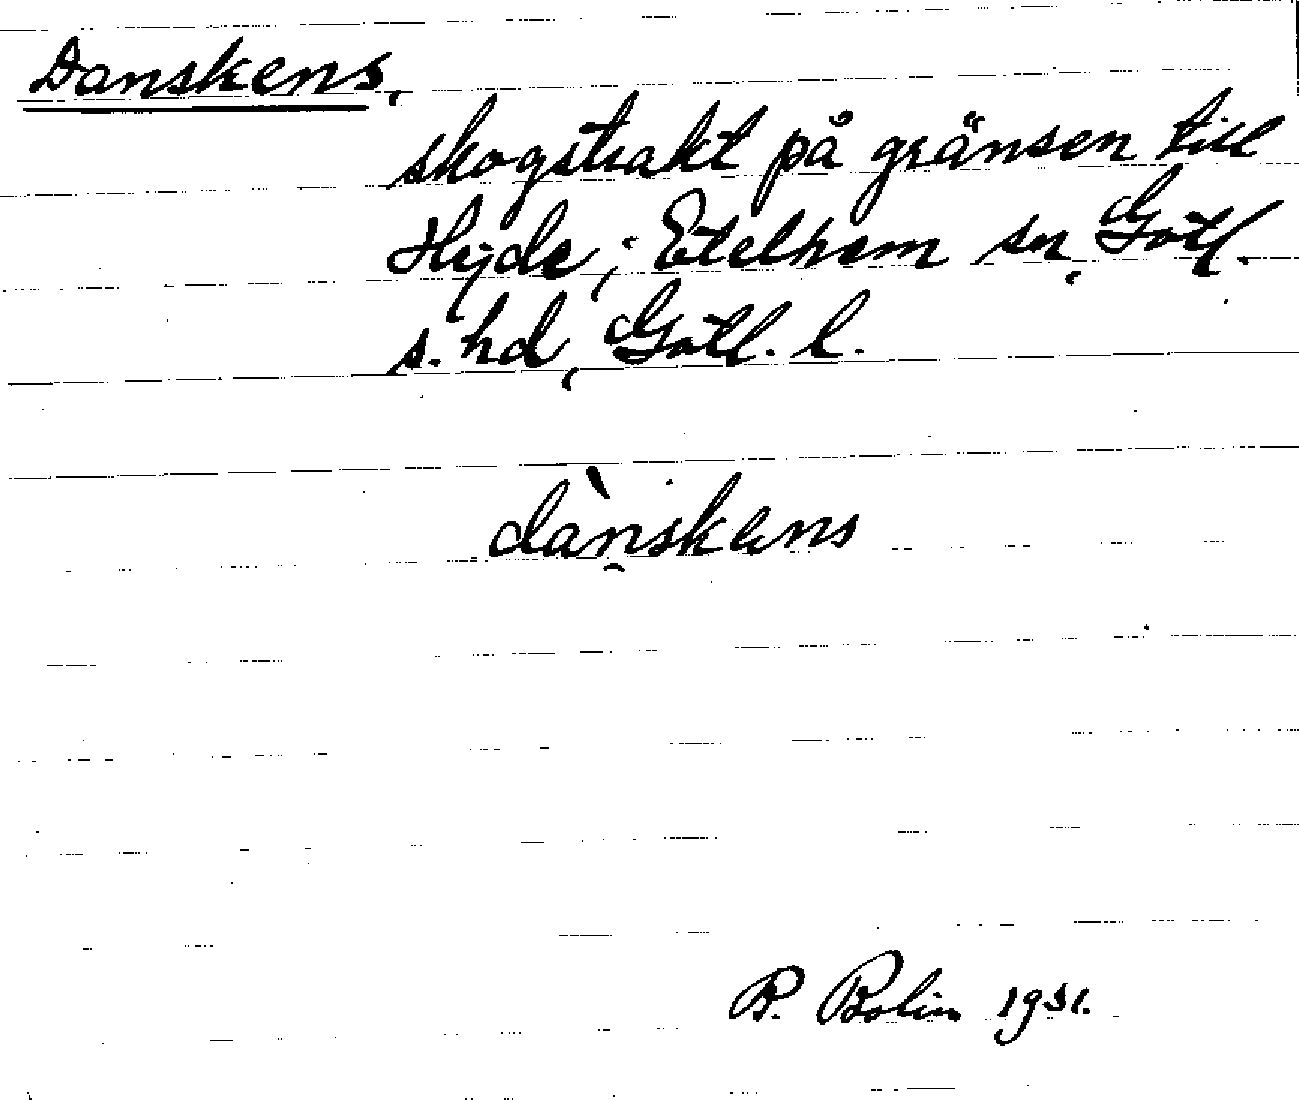 Danskens,
skogstrakt på gränsen till
Hejde; Etelhem sn, Gotl.
s. hd, Gotl. l.
dànskens
B. Bolin 1931.